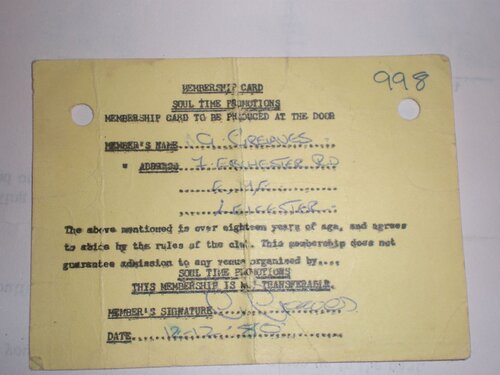 998
MEMBERSHIP CARD
SOUL TIME PROMOTIONS
MEMBERSHIP CARD TO BE PRODUCED AT THE DOOR
MEMBER'S NAME G. GREAVES
" ADDRESS 7 RD
LEICESTER
The above mentioned is over eighteen years of age, and agrees
to abide by the rules of the club. This membership does not
guarantee admission to any venue organised by....
SOUL TIME PROMOTIONS
THIS MEMBERSHIP IS NOT TRANSFERABLE
MEMBER'S SIGNATURE
DATE 12-12-80